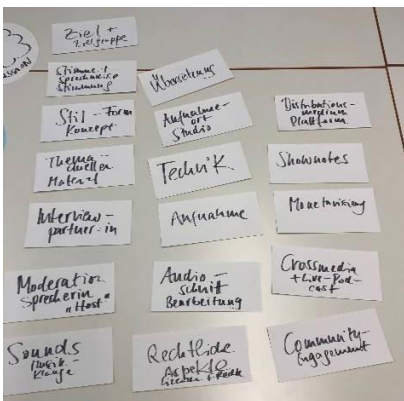 Ziel +
Zielgruppe
Stimme +
Sprechweise
Stimmung
Stil - Form
Konzept
Thema
Quellen
Material
Interview-
partner-in
Moderation
Sprecherin
"Host"
Sounds
Musik-
Klänge
Übersetzung
Aufnahme-
ort
Studio
Technik
Aufnahme
Audio-
schnitt
Bearbeitung
Rechtliche
Aspekte
Distributions-
medium
Plattform
Shownotes
Monetarisierung
Crossmedia
+ Live-Pod-
cast
Community-
Engagement